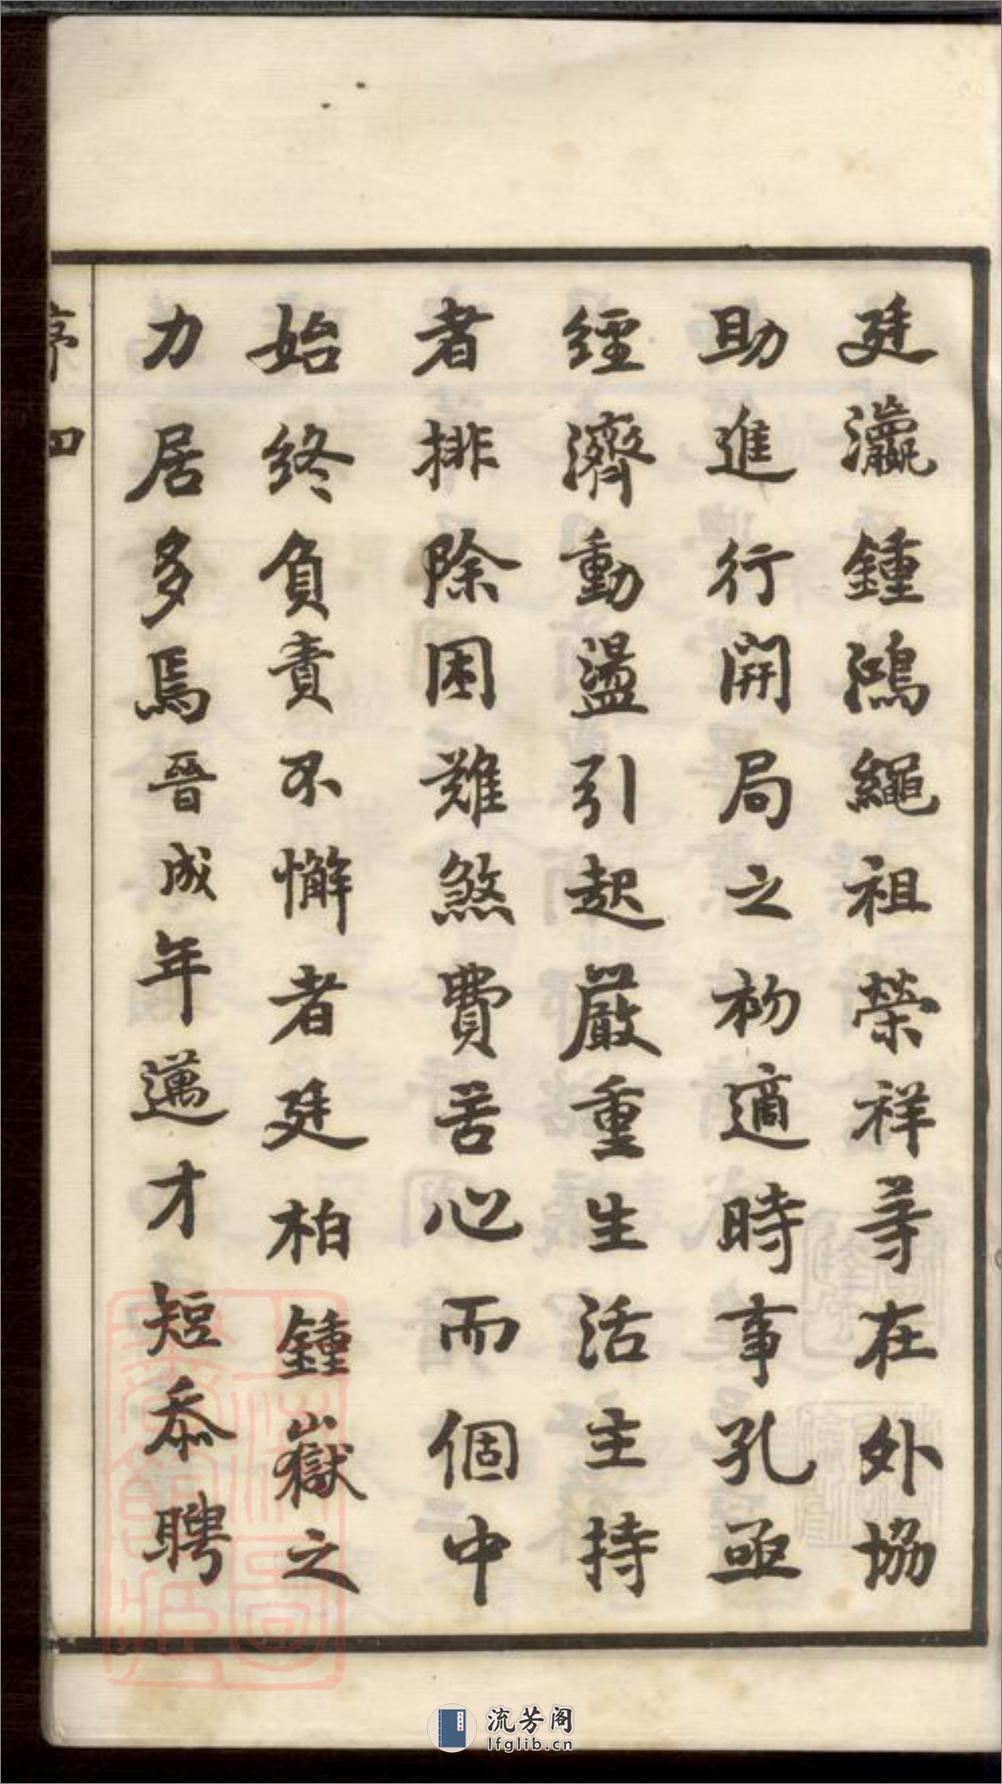 廷瀛鍾鴻繩祖榮祥等在外協
助進行開局之初適時事孔亟
經濟動盪引起嚴重生活主持
者排除困難煞費苦心而個中
始終負責不懈者廷柏鍾嶽之
力居多焉晉成年邁才短忝聘
序 四
流芳阁
lfglib.cn